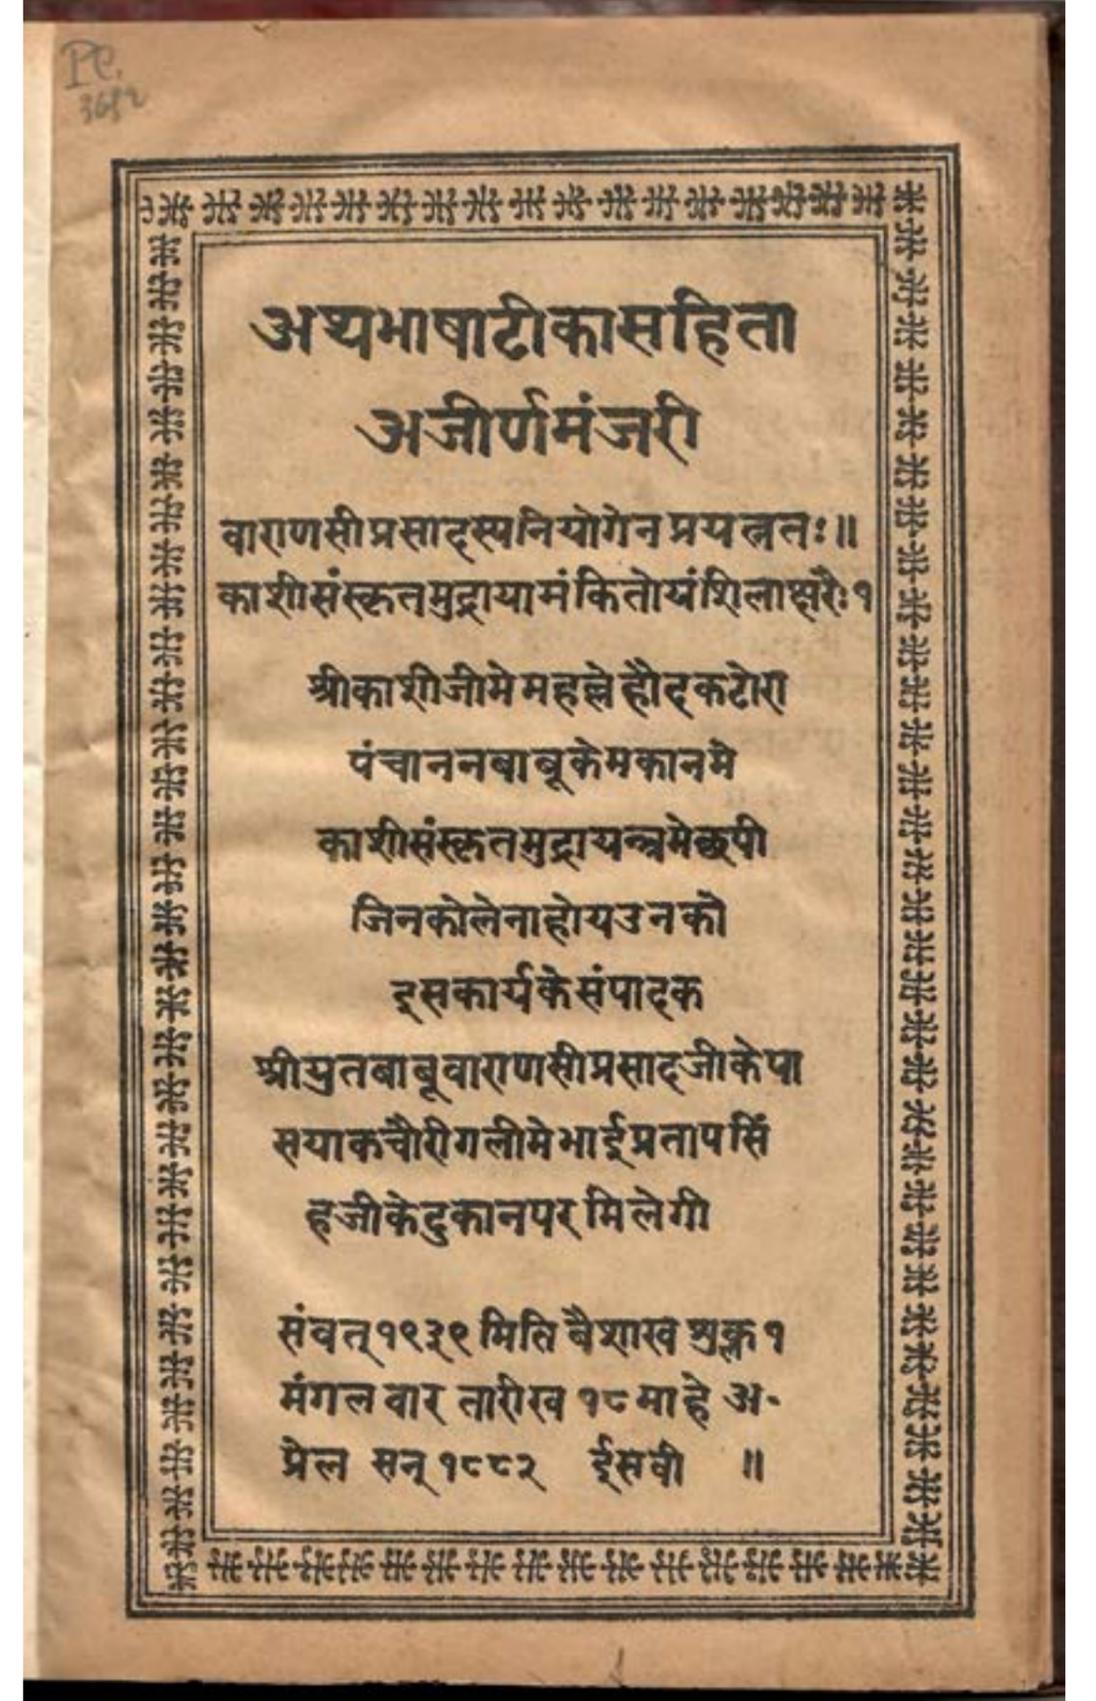 Pe.
अथभाषाटीकासहिता
अजीर्णमंजरी
वाराणसीप्रसादस्यनियोगेन प्रयत्नतः॥
काशीसंस्कृतमुद्रायामंकितोयंशिलाक्षरैः १
श्रीकाशीजीमे महल्ले हौदकटोरा
पंचाननबाबूकेमकानमे
काशीसंस्कृतमुद्रायन्त्रमेछपी
जिनकोलेनाहोयउनको
इसकार्यकेसंपादक
श्रीयुतबाबूवाराणसीप्रसादजीकेपा
सयाकचौरीगलीमेभाईप्रतापसिं
हजीकेदुकानपर मिलेगी
संवत् १९३९ मिति वैशाख शुक्ल १
मंगलवार तारीख १८ माहे अ-
प्रेल सन् १८८२ ईसवी ॥